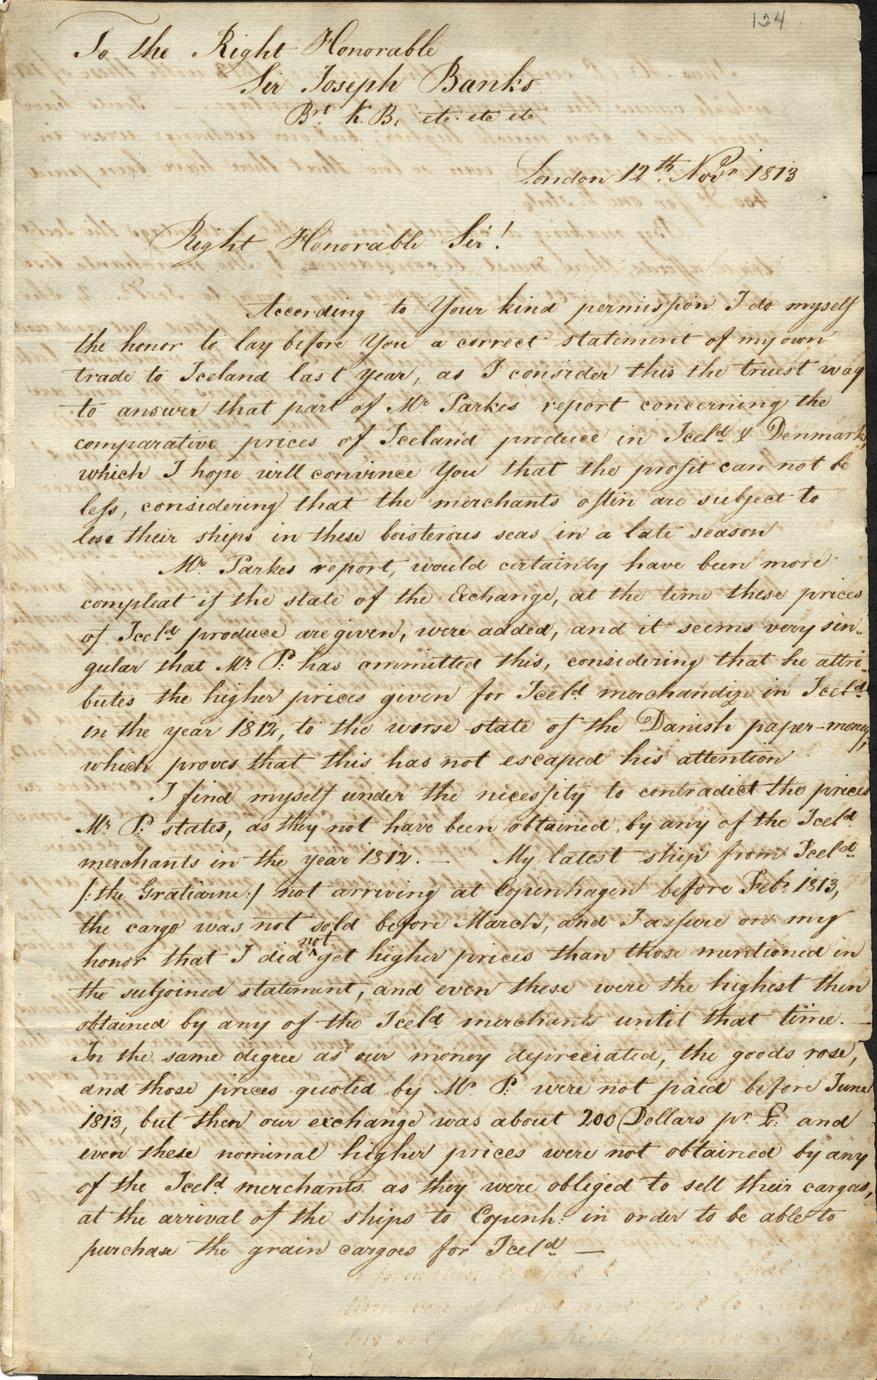 134
To the Right Honorable
Sir Joseph Banks
Brt K. B. etc. etc etc
London 12th. Novr 1813
Right Honorable Sir!
According to Your kind permission I do myself
the honor to lay before You a correct statement of my own
trade to Iceland last year, as I consider this the truest way
to answer that part of Mr Parkes report concerning the
comparative prices of Iceland produce in Iceld. & Denmark,
which I hope will convince You that the profit can not be
less, considering that the merchants often are subject to
lose their ships in these boisterous seas in a late season
Mr. Parkes report, would certainly have been more
compleat if the state of the Exchange, at the time these prices
of Iceld produce are given, were added, and it seems very sin-
gular that Mr P. has ommitted this, considering that he attri
butes the higher prices given for Iceld merchandize in Iceld.
in the year 1812, to the worse state of the Danish paper-money,
which proves that this has not escaped his attention
I find myself under the necessity to contradict the prices
Mr P. states, as they not have been obtained, by any of the Iceld
merchants in the year 1812. — My latest ship from Iceld
/: the Gratierne :/ not arriving at Copenhagen before Febr 1813,
the cargo was not sold before March, and I assure on my
honor that I did not get higher prices than those mentioned in
the subjoined statement, and even these were the highest then
obtained by any of the Iceld merchants until that time. —
In the same degree as our money depreciated, the goods rose,
and those prices quoted by Mr P. were not paid before June
1813, but then our exchange was about 200 Dollars pr £. and
even these nominal higher prices were not obtained by any
of the Iceld merchants as they were obliged to sell their cargos,
at the arrival of the ships to Copenh: in order to be able to
purchase the grain cargoes for Iceld —